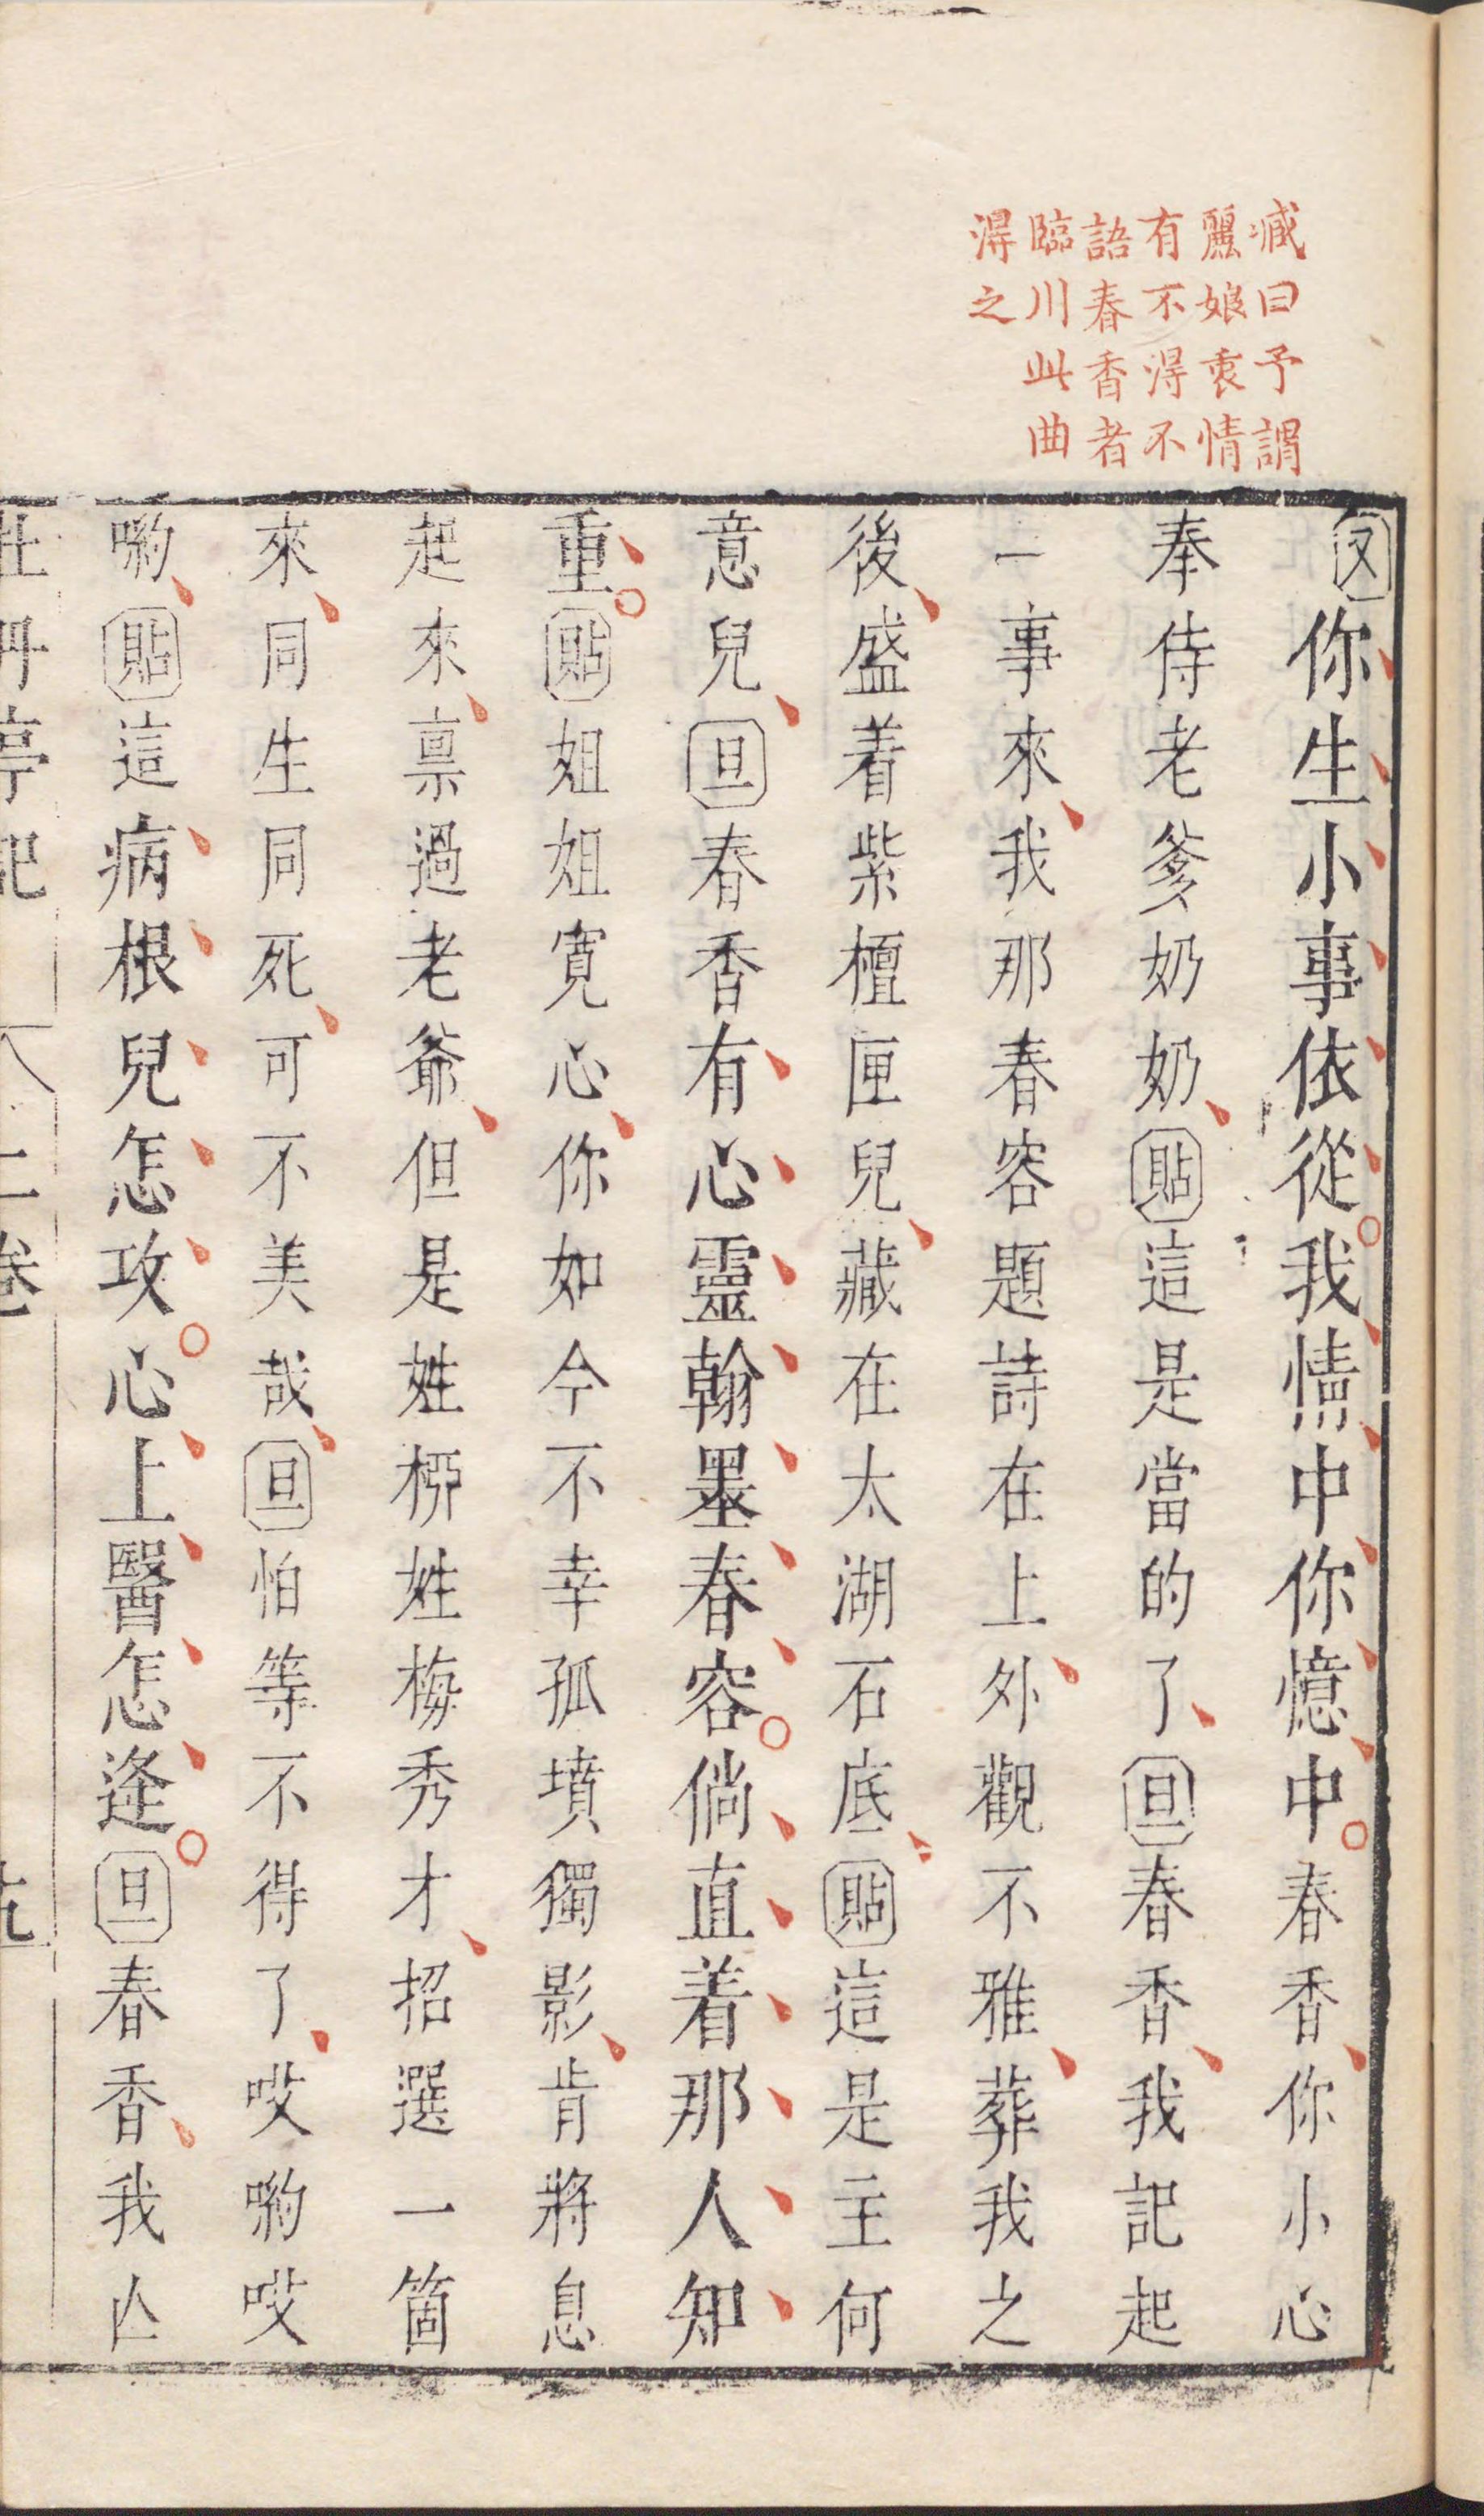 臧曰予謂
麗娘衷情
有不得不
語春香者
臨川此曲
得之
又你生小事依從我情中你憶中春香你小心
奉侍老爹奶奶貼這是當的了旦春香我記起
一事來我那春容題詩在上外觀不雅葬我之
後盛着紫檀匣兒藏在太湖石底貼這是主何
意兒旦春香有心靈翰墨春容倘直着那人知
重貼姐姐寬心你如今不幸孤墳獨影肯將息
起來禀過老爺但是姓柳姓梅秀才招選一箇
來同生同死可不美哉旦怕等不得了哎喲哎
喲貼這病根兒怎攻心上醫怎逢旦春香我亾
牡丹亭記 上卷